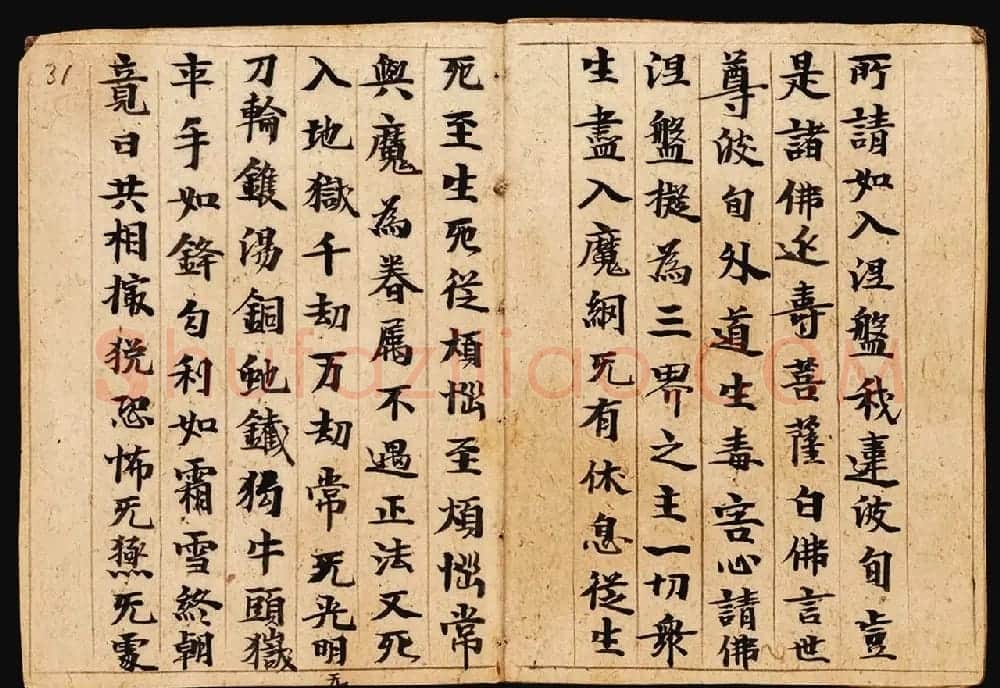 所請如入涅盤我違波旬豈
是諸佛延壽菩薩白佛言世
尊波旬外道生毒害心請佛
涅盤擬為三界之主一切眾
生盡入魔網无有休息從生
死至生死從煩惱至煩惱常
與魔為眷屬不遇正法又死
入地獄千劫万劫常无光明
无
刀輪鑊湯銅蛇鐵狗牛頭獄
卒手如鋒勾利如霜雪終朝
竟日共相恐怖无无處
31
Shufaziliao.COM